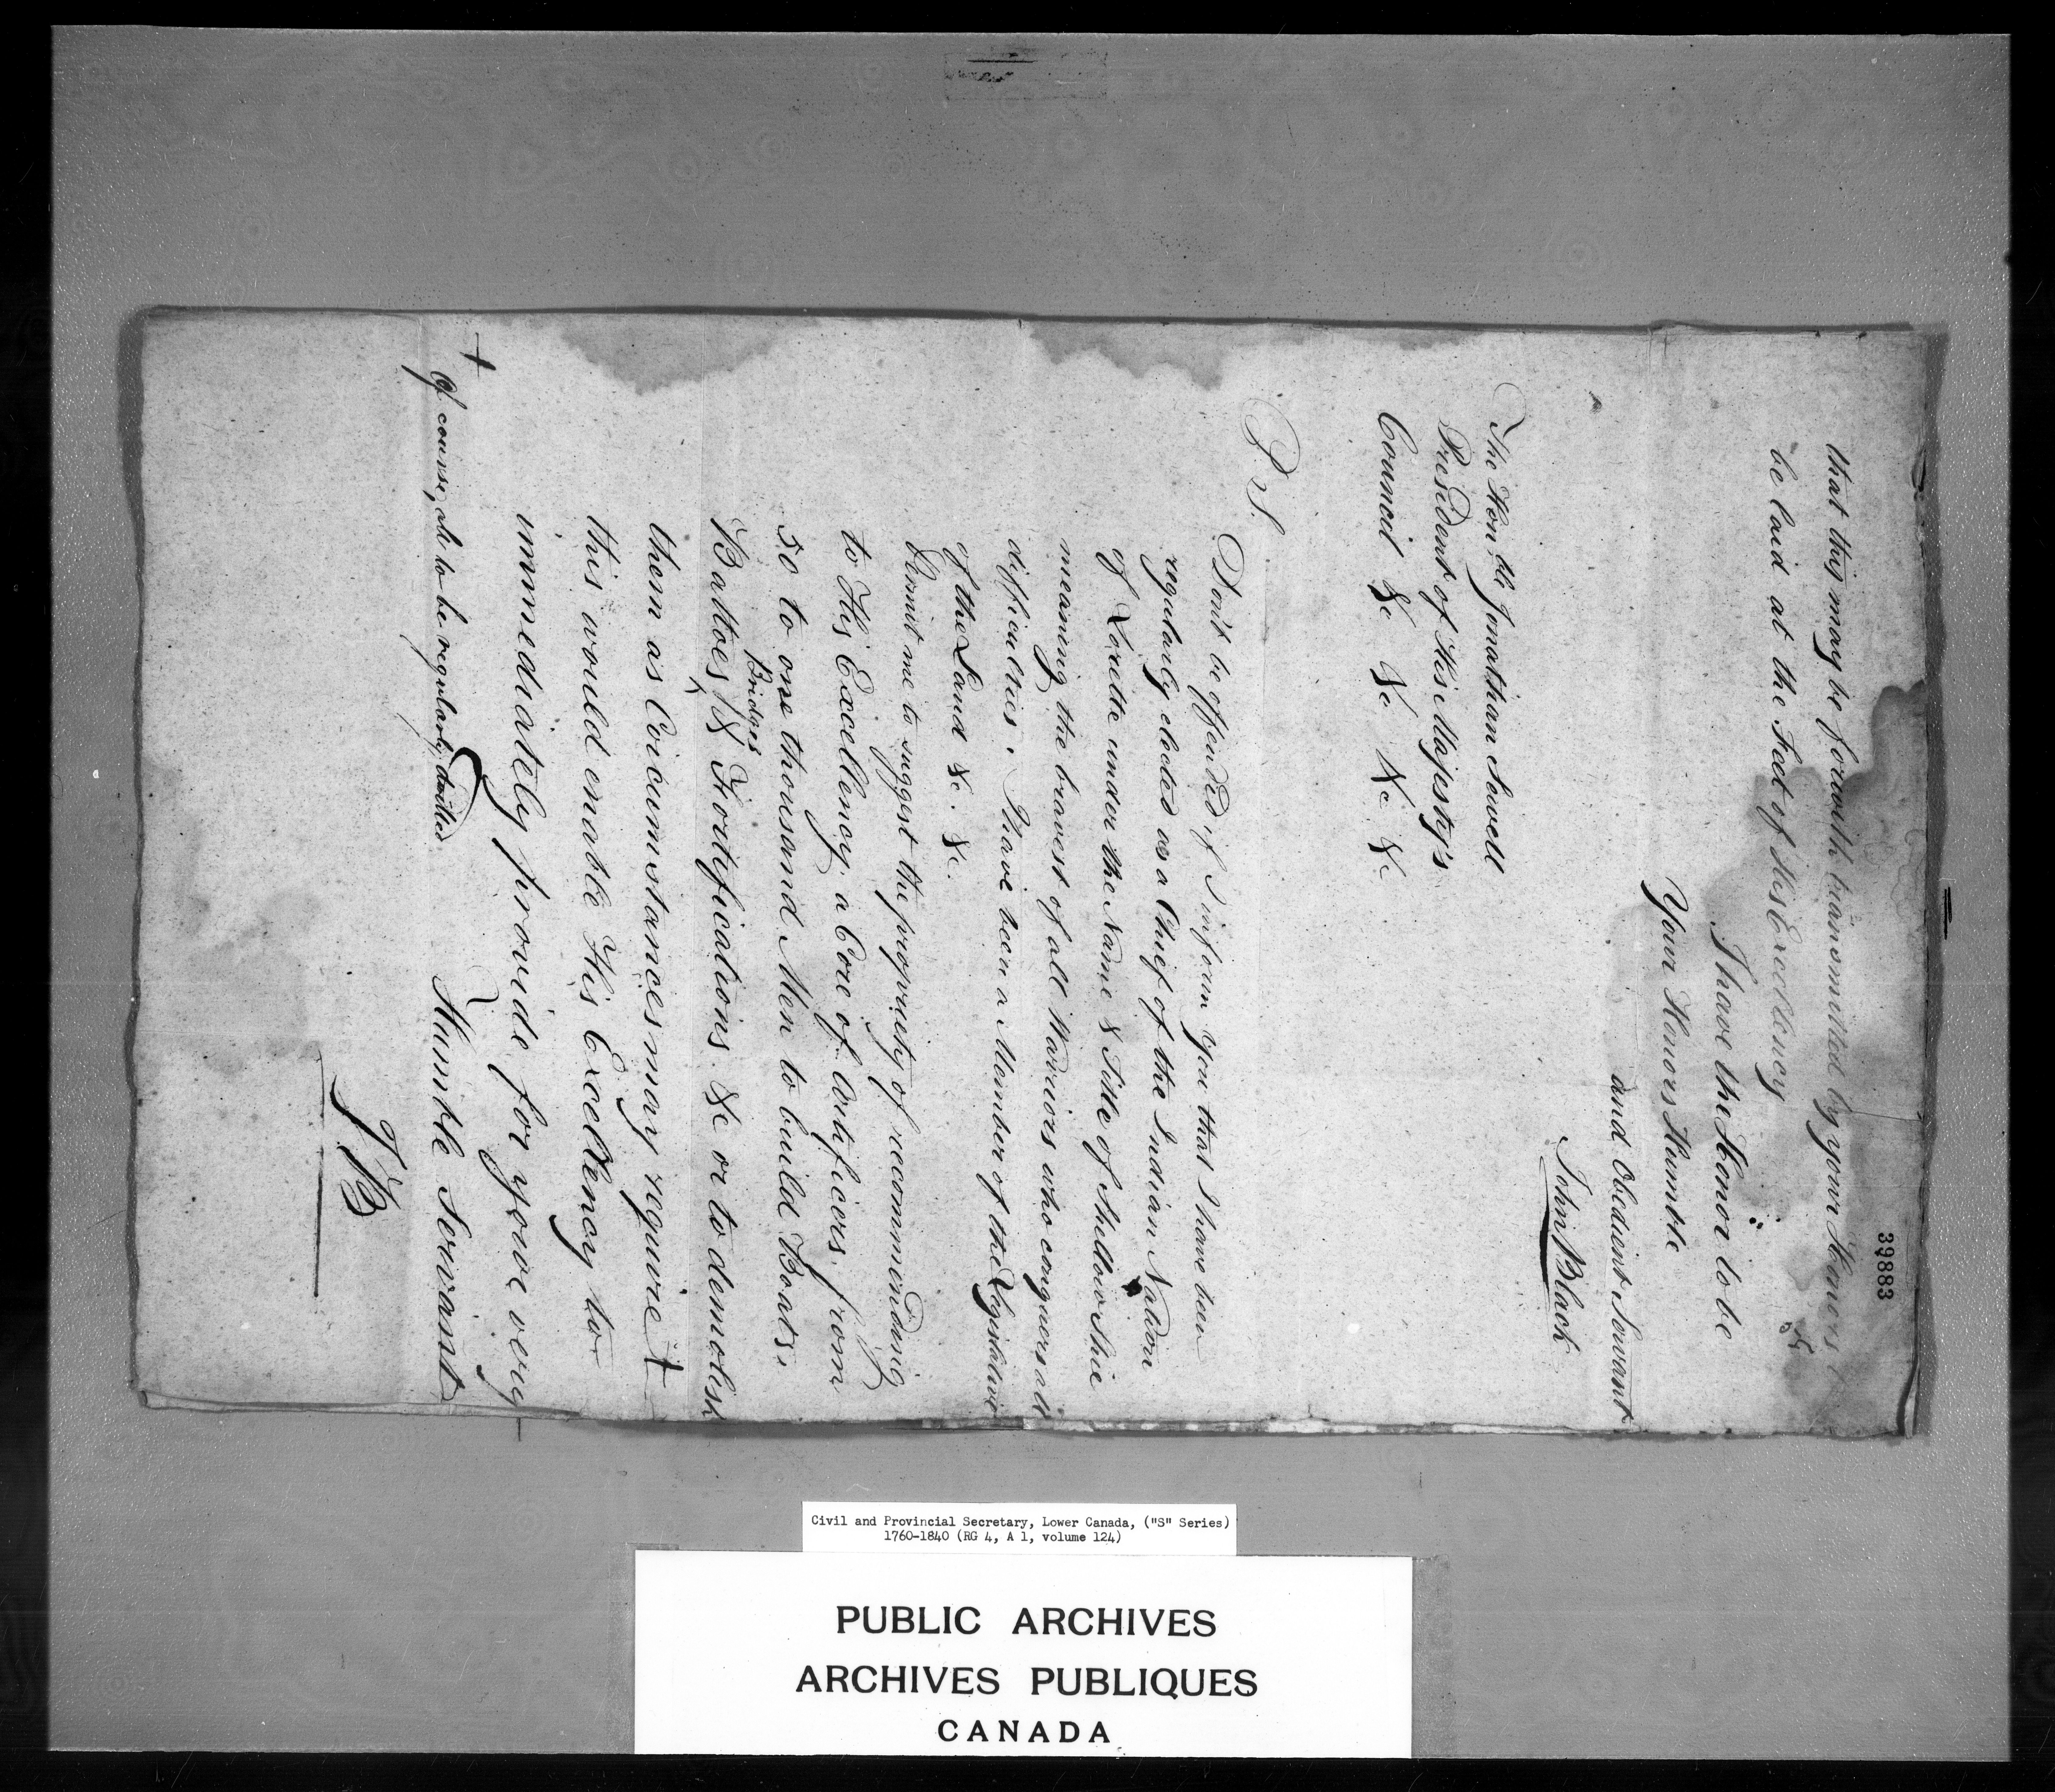 39883
that this may be forwith transmitted by your Honors
be laid at the Feet of His Excellency
I have the Honor to be
Your Honors Humble
and Obedient Servant
John Black
The Hon.ble Jonathan Sewell
President of His Majesty's
Council &c &c &c &c
P.S.
Dont be offended if I inform you that I have been
regularly elected as a Chief of the Indian Nation
of Lorette under the Name & Title of
meaning the bravest of all Warriors who conquers all
difficulties. I have been a Member of the Legislative
of the Land &c. &c.
Permit me to suggest the propriety of recommending
to His Excellency a Core of Artificers, from
50 to one thousand Men to build Boats,
Battoes, Bridges & Fortifications &c or to demolish
them as Circumstances may require +
this would enable His Excellency to
immediately provide for your very
Humble Servant
+ Of course, all to be regularly drilled
JB
Civil and Provincial Secretary, Lower Canada, ("S" Series)
1760-1840 (RG 4, A 1, volume 124)
PUBLIC ARCHIVES
ARCHIVES PUBLIQUES
CANADA